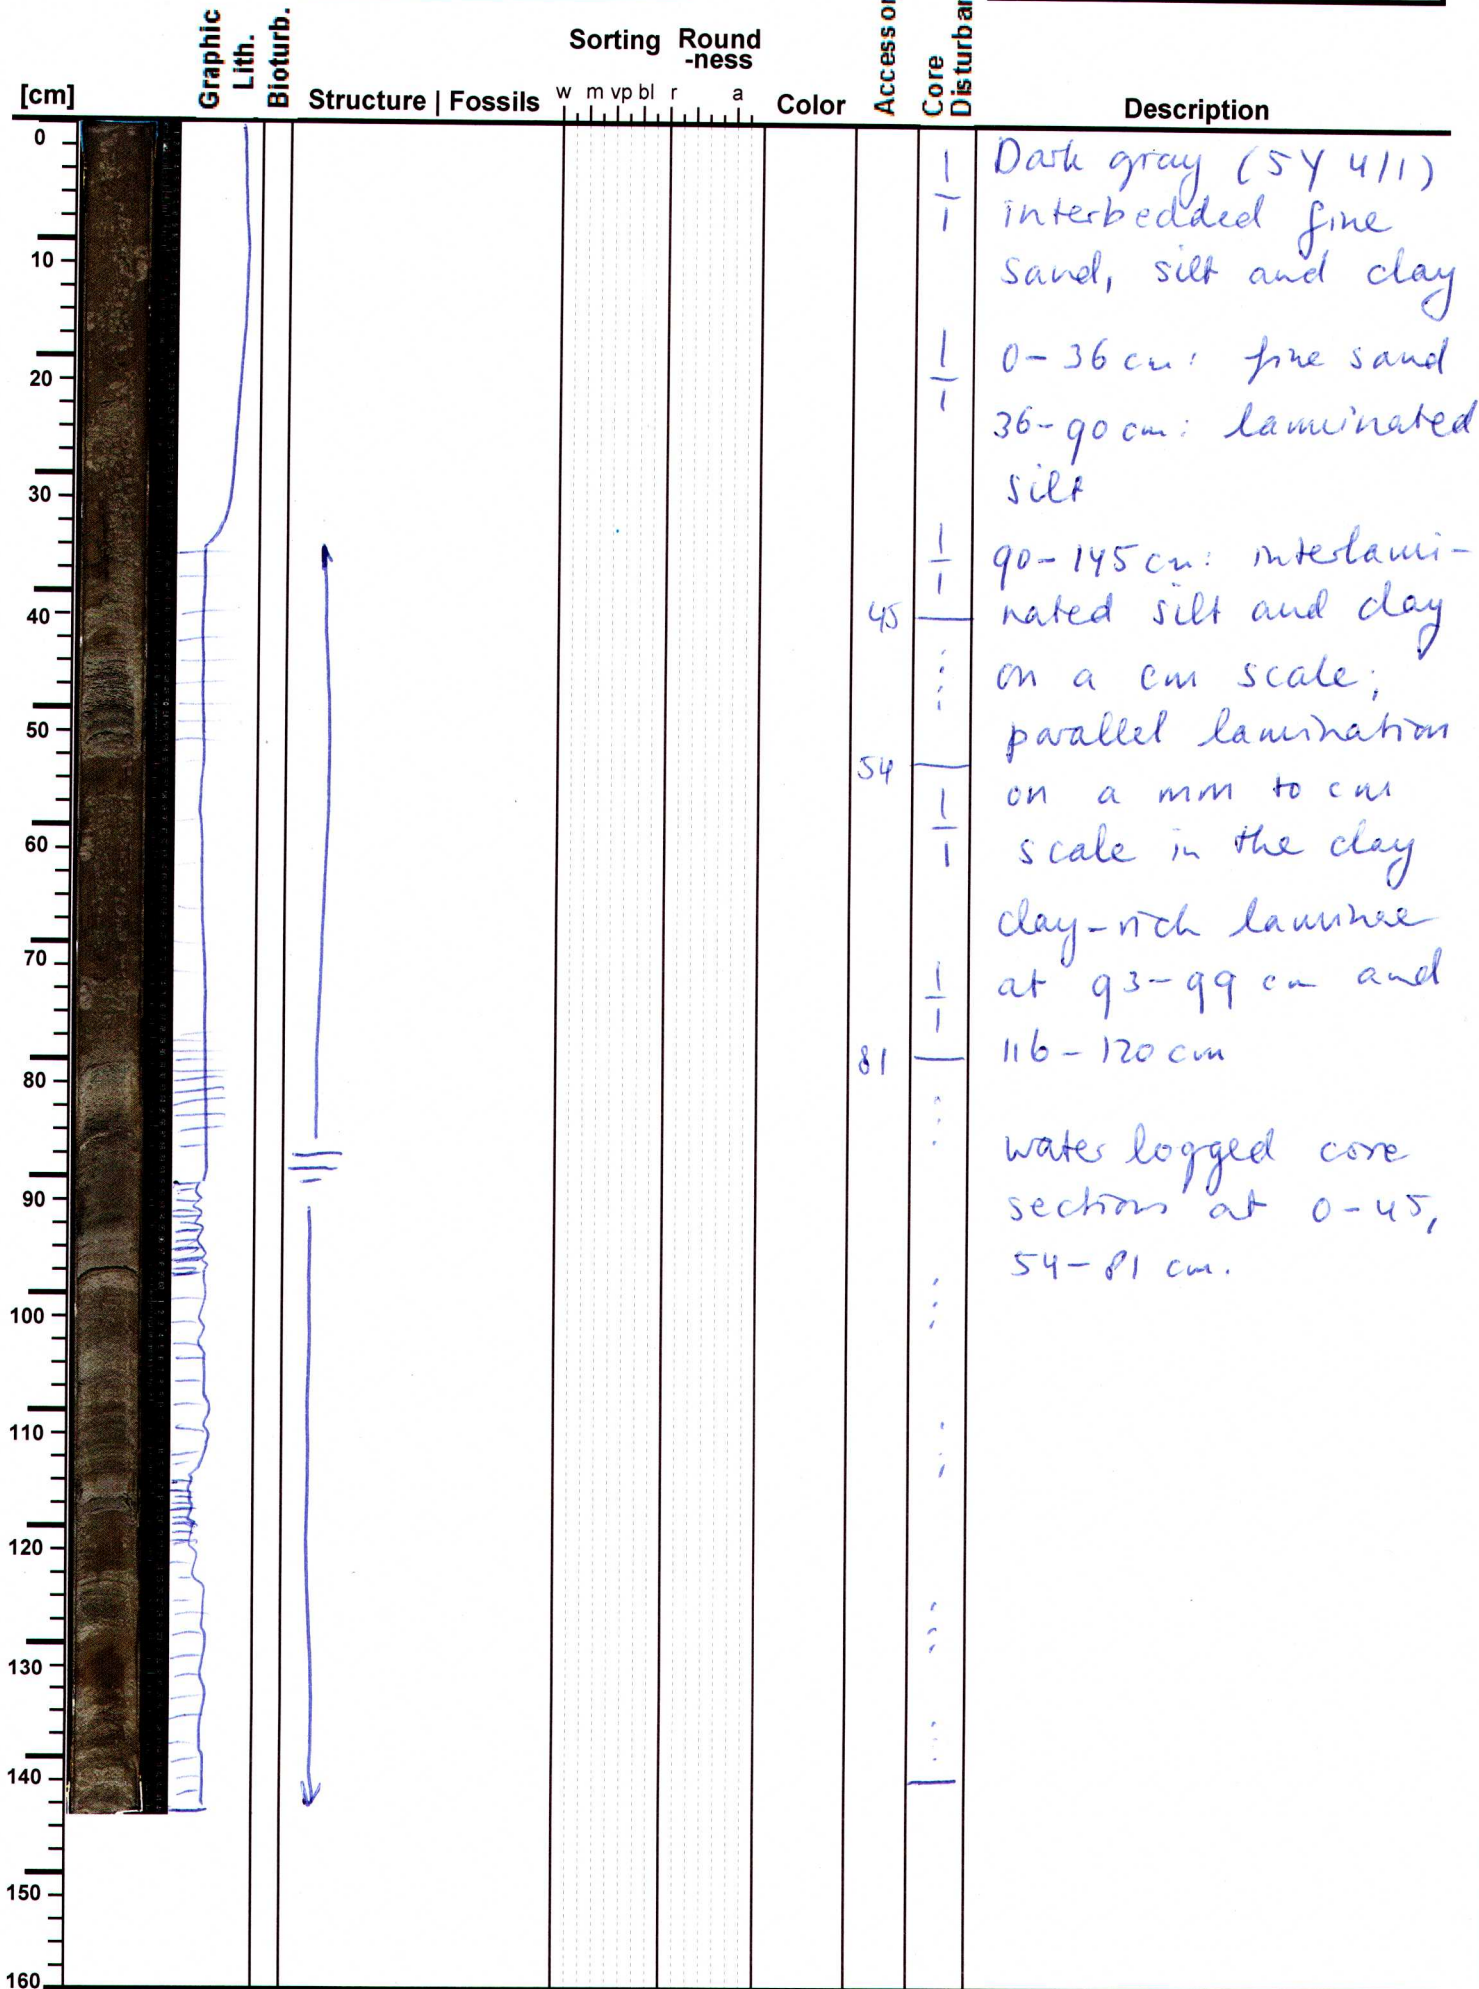 Graphic
Lith.
Bioturb.
Structure | Fossils
Sorting
w m vp bl
Round
-ness
r a
Color
Core
[cm]
Description
0
10
20
30
40
50
60
70
80
90
100
110
120
130
140
150
160
45
54
81
Dark gray (5Y 4/1)
interbedded fine
sand, silt and clay
0-36 cm: fine sand
36-90 cm: laminated
silt
90-145 cm: interlami-
nated silt and clay
on a cm scale;
parallel lamination
on a mm to cm
scale in the clay
clay-rich laminae
at 93-99 cm and
116-120 cm
water logged core
sections at 0-45,
54-81 cm.